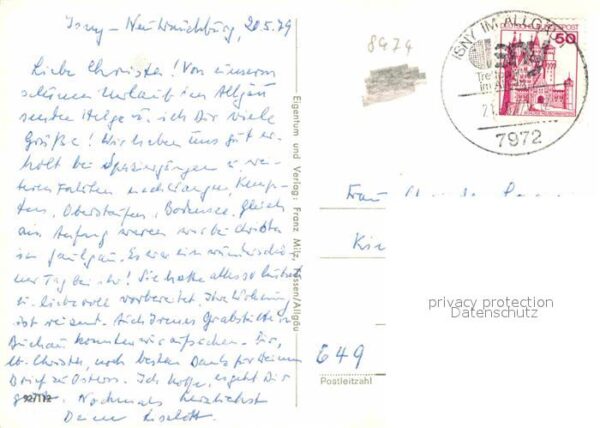 Isny - Neutrauchburg, 20.5.79
Liebe Christa! Von unserm
schönen Urlaub im Allgäu
senden Helga u. ich Dir viele
Grüße! Wir haben uns gut er-
holt bei Spaziergängen u. wei-
teren Fahrten nach Wangen, Kemp-
ten, Oberstaufen, Bodensee. Gleich
am Anfang waren wir bei Christa
in Saulgau. Es war ein wunderschö-
ner Tag bei ihr! Sie hatte alles so
u. liebevoll vorbereitet. Ihre Wohnung
ist reizend. Auch Grabstätte in
Buchau konnten wir aufsuchen. Dir,
lb. Christa, noch besten Dank für Deinen
Brief zu Ostern. Ich hoffe, es geht Dir
gut. Nochmals herzlichst
Deine Liselott.
92/172
Eigentum und Verlag: Franz Milz, Füssen/Allgäu
8474
ISNY IM ALLGÄU
isny
7972
50
Frau
649
Postleitzahl
privacy protection
Datenschutz